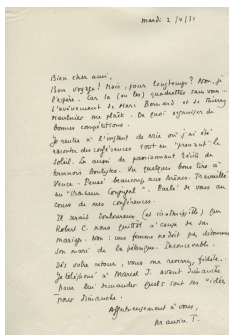 mardi 2/4/51
Bien cher ami,
Bon voyage! Mais, pour longtemps? Non, je
l'espère. Car la (ou les) quadrettes sans vous -
L'avènement de Marc Bonnard et de Thierry
Maulnier me plaît. De quoi organiser de
bonnes compétitions.
Je rentre à l'instant de Nice où j'ai été
écouter des conférences tout en "prenant" le
soleil. Là aussi de passionnants débits de
tournois boulistes. Vu quelques bons tirs à
Vence. Pensé beaucoup aux Arènes. Travaillé
au " Conjugal". Parlé de vous au
cours de mes conférences.
Il serait douloureux (et inadmissible) que
Robert C. nous quittât à cause de son
mariage. Non: une femme ne doit pas détourner
son mari de la pétanque. Inconcevable.
Dès votre retour, vous me ferez, fidèle.
Je téléphone à Marcel J. avant dimanche
pour lui demander quels sont ses "idées"
pour dimanche.
Affectueusement à vous,
Maurice T.